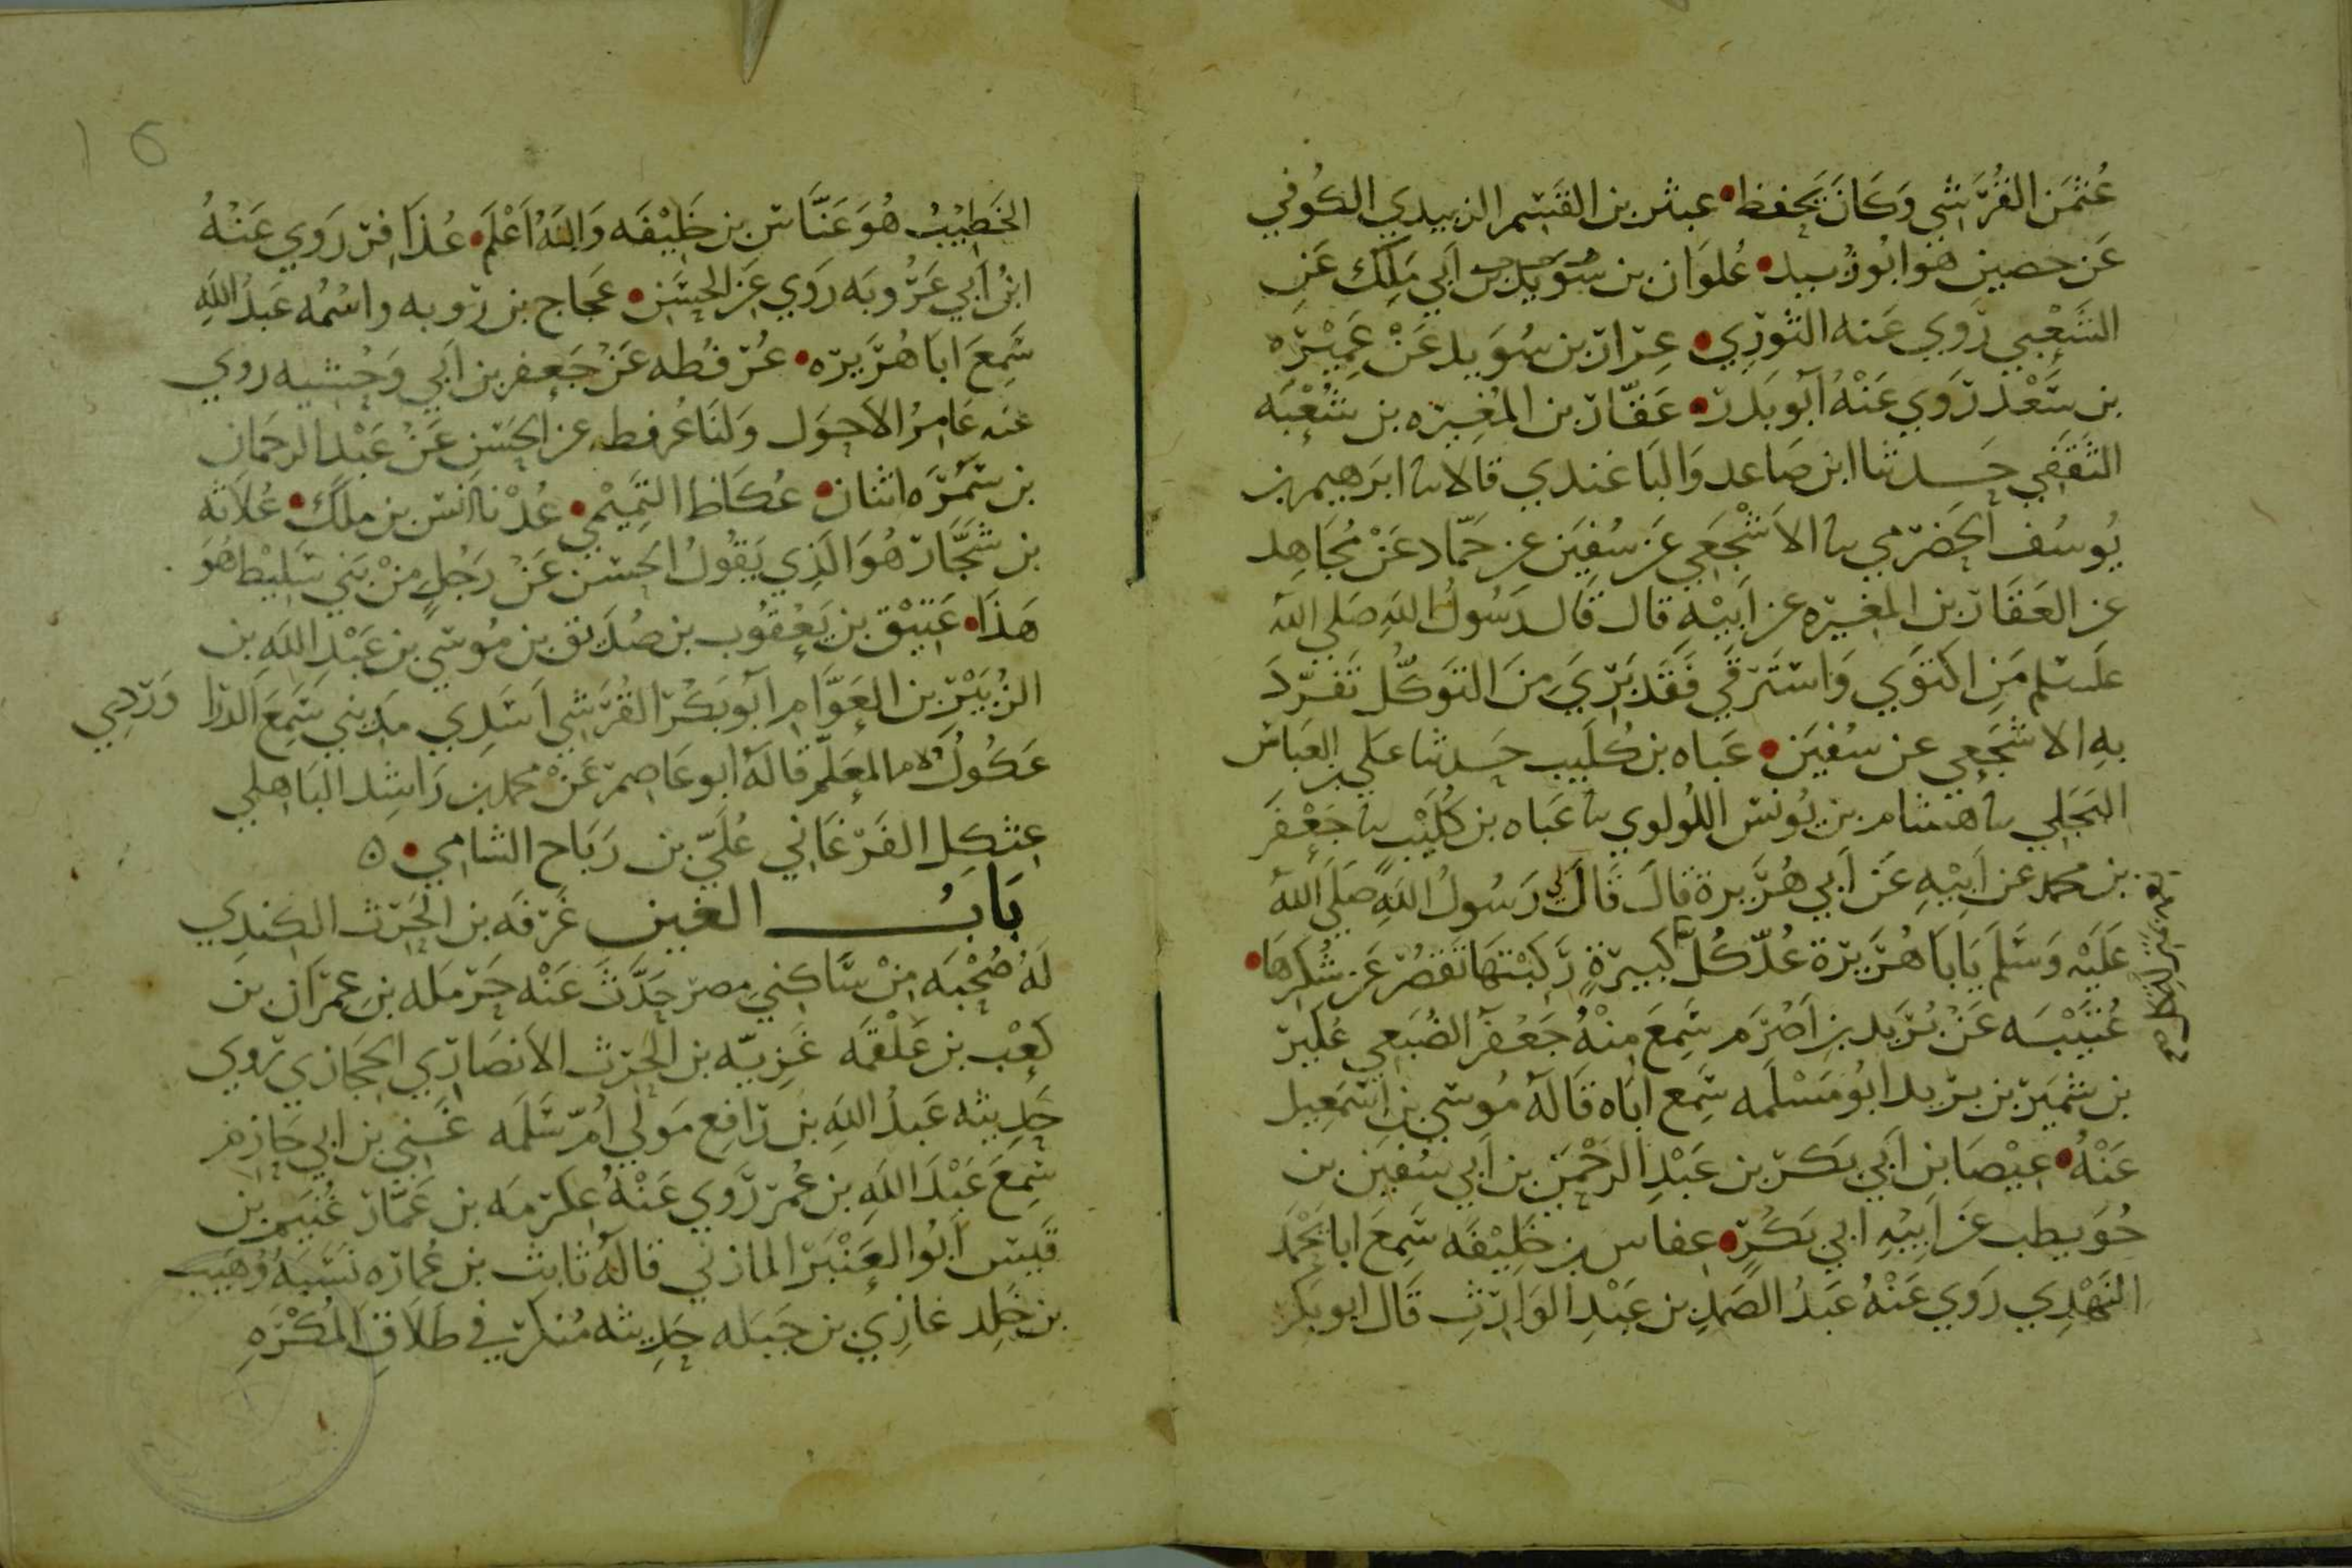 عُثمَن القُرَشي وَكَانَ يَحفظ عبثر بن القَسِم الزبيدي الكُوفي
عَن حصين هو ابُو زُبيد عُلوَان بن سُوَيد بن اَبي مَلِك عَنِ
الشَّعْبي رَوي عَنه الثَورِي عِرَار بن سُوَيد عَنْ عَمِيْرَه
بن سَعْد رَوَي عَنْهُ اَبُو بَلَدر عَقّار بن المُغِيرَه بن شُعْبَه
الثَقَفي حَدثنا ابن صَاعد وَالبَاغندي قالا نا ابرَهيم بن
يُوسُف الحَضرَمي نا الاَشْجَعي عَن سُفيَن عن حَمّاد عَنْ مُجَاهِد
عن العَقَار بن المغيرَه عن اَبيْهِ قال قَال رَسُولُ اللهِ صَلي الله
عَلَسلم مَنِ اكتَوَي وَاستَرقَي فَقَد بَرِيَ مِنَ التَوَكُّل تَفَرّدَ
بِهِ الاشجَعي عن سُفيَن عَبَاه بن كُلَيب حَدثنا عَلي بن العَبَاس
البَجَلي نا هشام بن يُونس اللُولوي نا عَبَاه بن كُلَيْب نا جَعْفَر
بن محمد عن اَبيْهِ عَن اَبي هُرَيرة قالَ قَالَ لي رَسُولُ اللهِ صَلَي الله
عَلَيْهِ وَسَلَم يَابَا هُرَيرَة عُدّ كُلّ كَبيرَةٍ رَكَبْتَهَا تَقصُر عَن شُكرِهَا
عُتَيْبَه عَنْ بُرَيد بن اَصْرَم سَمِعَ مِنْهُ جَعْفَر الضُبَعي عُكَير
بن شمَير بن يزيد ابُو مَسْلَمه سَمِع اَبَاه قَالَهُ مُوسَي بن اِسمَعِيل
عَنْهُ عِيْصَا بن اَبي بَكر بن عَبْدِ الرحْمَن بن اَبي سُفين بن
حُوَيطب عَن اَبيْهِ اَبي بَكْر عفاس بن خَلِيْفَه سَمِعَ ابا مُحَمَد
النَهْدِي رَوَي عَنْهُ عَبدُ الصَمدِ بن عَبْدِ الوَارِثِ قَال ابو بكر
الخَطِيْبُ هُوَ عَنَّاس بن خَلِيْفَه وَاللهُ اَعْلَم عُذَافر رَوي عَنْهُ
ابْنُ اَبي عَرُوبَه رَوَي عَن الحسَن عَجاج بن رؤبه واسْمُه عَبدُ اللهِ
سَمِعَ ابَا هُرَيرَه عُرْفُطه عَنْ جَعفر بن اَبي وَحْشيه روي
عنه عَامِرُ الاحوَل وَلَنَا عُرفطه عن الحَسَن عَنْ عَبْد الرحمَان
بن سَمُرَه اثنان عُكَاظ التَّمِيْمي عُدْنا اَنَس بن مَلك عُلاَثَه
بن شَجَّار هُوَ الَذِي يَقُولُ الحَسَن عَنْ رَجُلٍ مِنْ بَني سَلِيْط هُوَ
هَذَا عَتِيْق بن يَعْقُوب بن صُدَيق بن مُوسَي بن عَبْدِ اللهِ بن
الزُبَيْر بن العَوَّامِ اَبُو بَكْر القُرَشي اَسَدِي مَدِيني سَمِعَ الدرَا وَردي
عَكُوك المعَلّم قالَهُ ابو عَاصِم عَنْ محمد بن رَاشِد البَاهلي
عِثكِل الفَرْغَاني عُلَيّ بن رَبَاح الشامي ٥
بَابُ الغين غَرَفَه بن الحَرث الكندِي
لَهُ صُحْبَه مِنْ سَاكِني مِصر حَدَّثَ عَنْه حَرملَه بنِ عِمرَان بن
كَعْب بن عَلْقَمَه غَزِيّه بن الحَرث الاَنصَارِي الحجَازي رَوي
حَدِيثه عَبدُ اللهِ بن رَافِع مَولَي اُمّ سَلَمه غَني بن ابي حَازم
سَمِعَ عَبْدَ اللهِ بن عُمَر رَوي عَنْهُ عِكرمَه بن عَمَّار غُنَيم بن
قَيس اَبُو العَنْبَر المازني قالَهُ ثابت بن عُمَارَه نَسَبَهُ وُهَيب
بن خَلِد غازِي بن جَبَله حَدِيثه مُنكَر في طَلَاقِ المُكْرَهِ